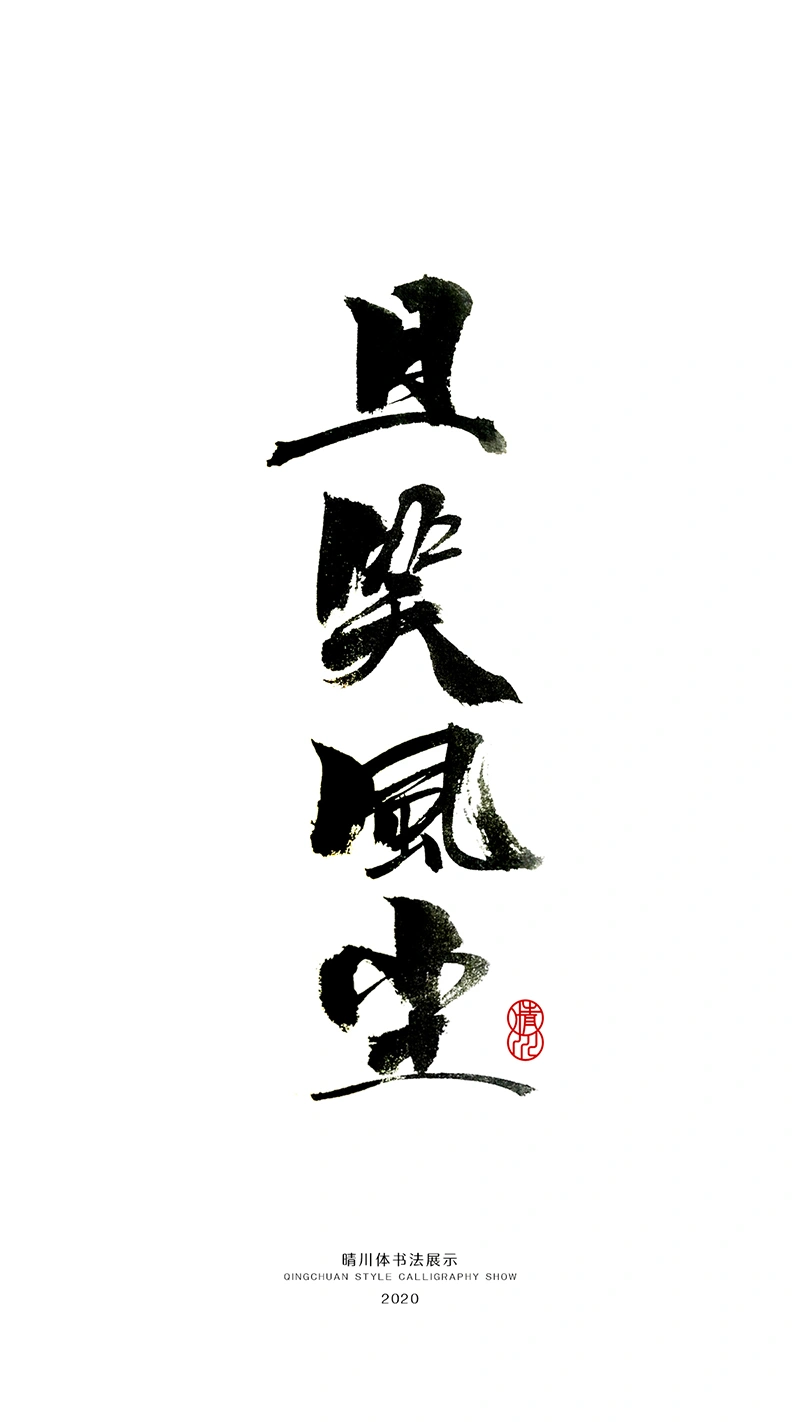 且笑風尘
晴川
晴川体书法展示
QINGCHUAN STYLE CALLIGRAPHY SHOW
2020